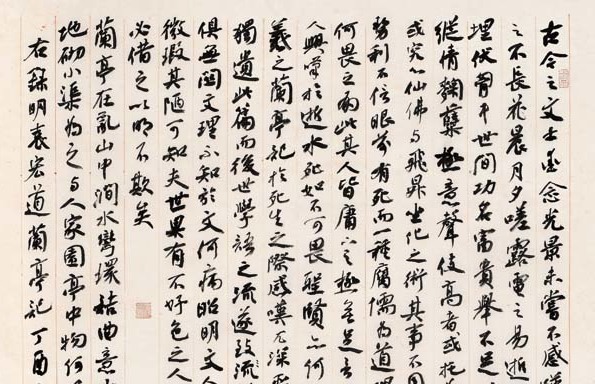 古今之文士愛念光景未嘗不感嘆
之不長花晨月夕嗟露電之易逝
埋伏胷中世間功名富貴舉不足
縱情麴糵極意聲伎高者或托
或究心仙佛與飛昇坐化之術其事不同
勢利不信眼前有死而一種腐儒為道理
何畏之有此其人皆庸下之極無足言
人興嘆於逝水死如不可畏聖賢亦何
羲之蘭亭記於死生之際感嘆尤深
獨遺此篇而後世學語之流遂致疑
俱無關文理不知於文何病昭明文人
微瑕其陋可知夫世果有不好色之人
必借之以明不欺矣
蘭亭在亂山中澗水彎環詰曲意
地砌小渠為之與人家園亭中物何
右錄明袁宏道蘭亭記丁酉